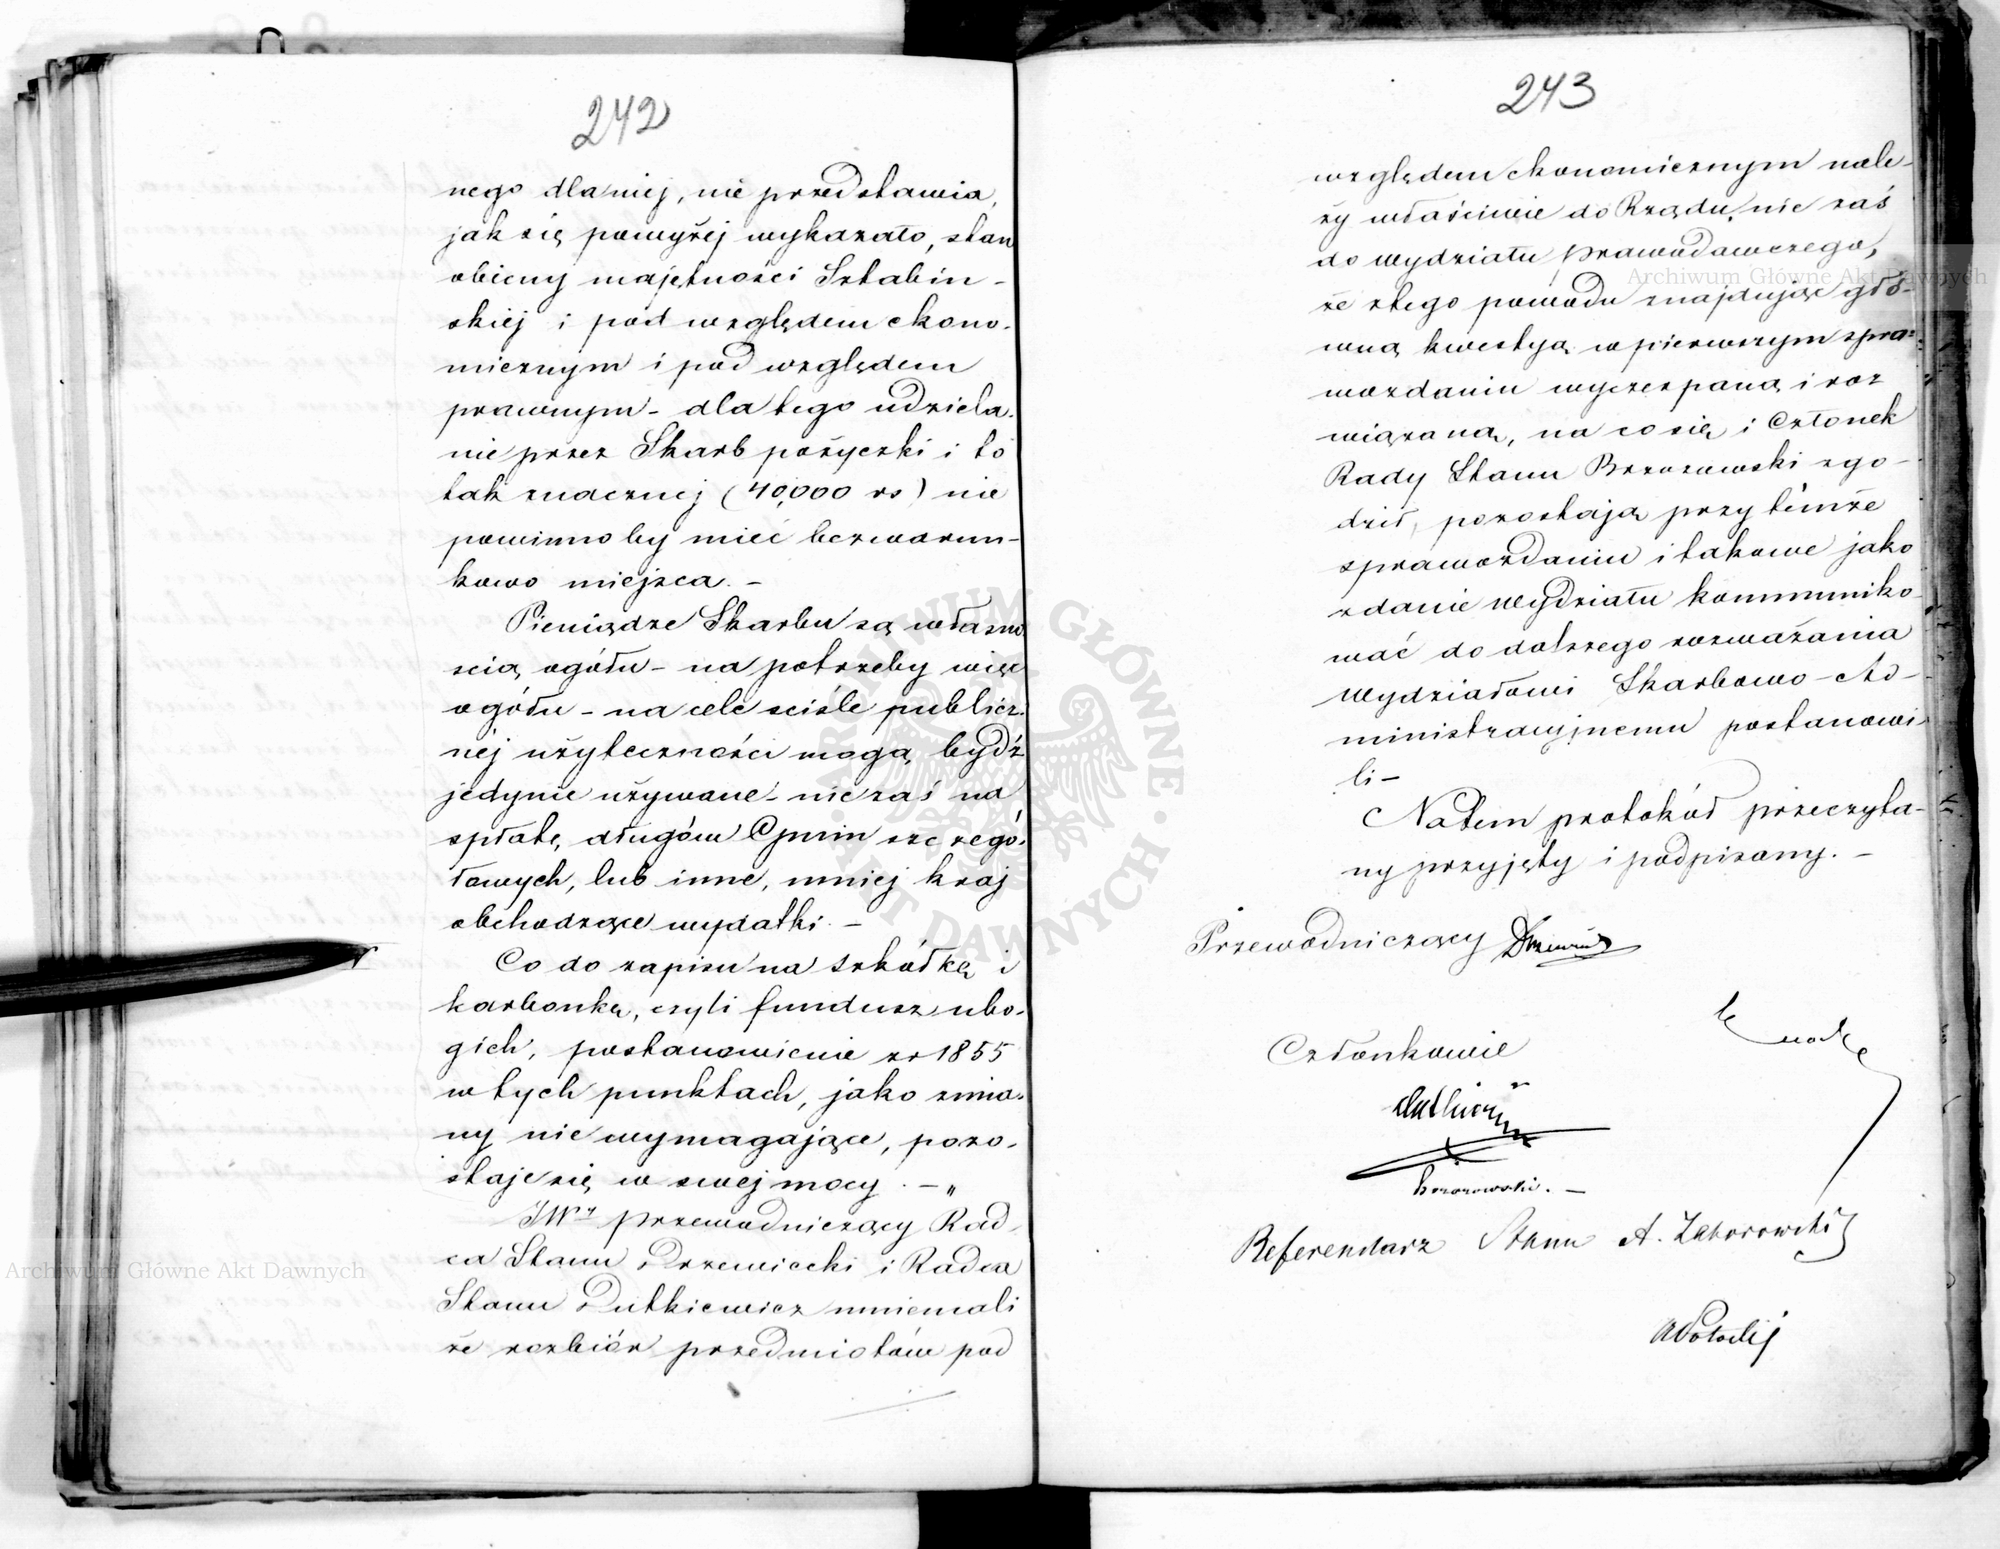 242
nego dla niej, nie przedstawia,
jak się powyżej wykazało, stan
obecny majętności Sztabin-
skiej i pod względem ekono-
micznym i pod względem
prawnym – dla tego udziela-
nie przez Skarb pożyczki i to
tak znacznej (40,000 rs) nie
powinnoby mieć bezwarun-
kowo miejsca. –
Pieniądze Skarbu są własno
scią ogółu – na potrzeby więc
ogółu – na cele sciśle publicz-
nej użyteczności mogą bydź
jedynie używane – nie zaś na
spłatę długów Gmin szczegó-
łowych, lub inne, mniej kraj
obchodzące wydatki. –
Co do zapisu na szkółkę i
karbonkę, czyli fundusz ubo-
gich, postanowienie z r 1855
w tych punktach, jako zmia-
ny nie wymagające, pozo-
staje się w swej mocy. – „
JWy Przewodniczący Rad-
ca Stanu Drzewiecki i Radca
Stanu Dutkiewicz mniemali
że rozbiór przedmiotów pod
243
względem ekonomicznym nale-
ży właściwie do Rządu, nie zaś
do wydziału prawodawczego,
że z tego powodu znajdując głó-
wną kwestyą w pierwszym spra-
wozdaniu wyczerpaną i roz
wiązaną, na co się i Członek
Rady Stanu Brzozowski zgo-
dził, pozostają przy témże
sprawozdaniu i takowe jako
zdanie Wydziału kommuniko-
wać do dalszego rozważania
Wydziałowi Skarbowo-Ad-
ministracyjnemu postanowi
li –
Na tem protokół przeczyta-
ny przyjęty i podpisany. –
Przewodniczący Drzewiecki
Członkowie
Dutkiewicz
Brzozowski. –
Referendarz Stanu A. Zaborowski
Archiwum Główne Akt Dawnych
Archiwum Główne Akt Dawnych
ARCHIWUM GŁÓWNE · AKT DAWNYCH ·